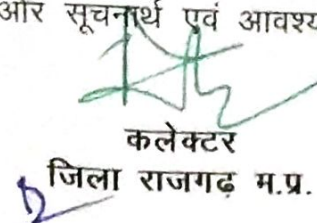 ओर सूचनार्थ एवं आवश्य
कलेक्टर
जिला राजगढ़ म.प्र.